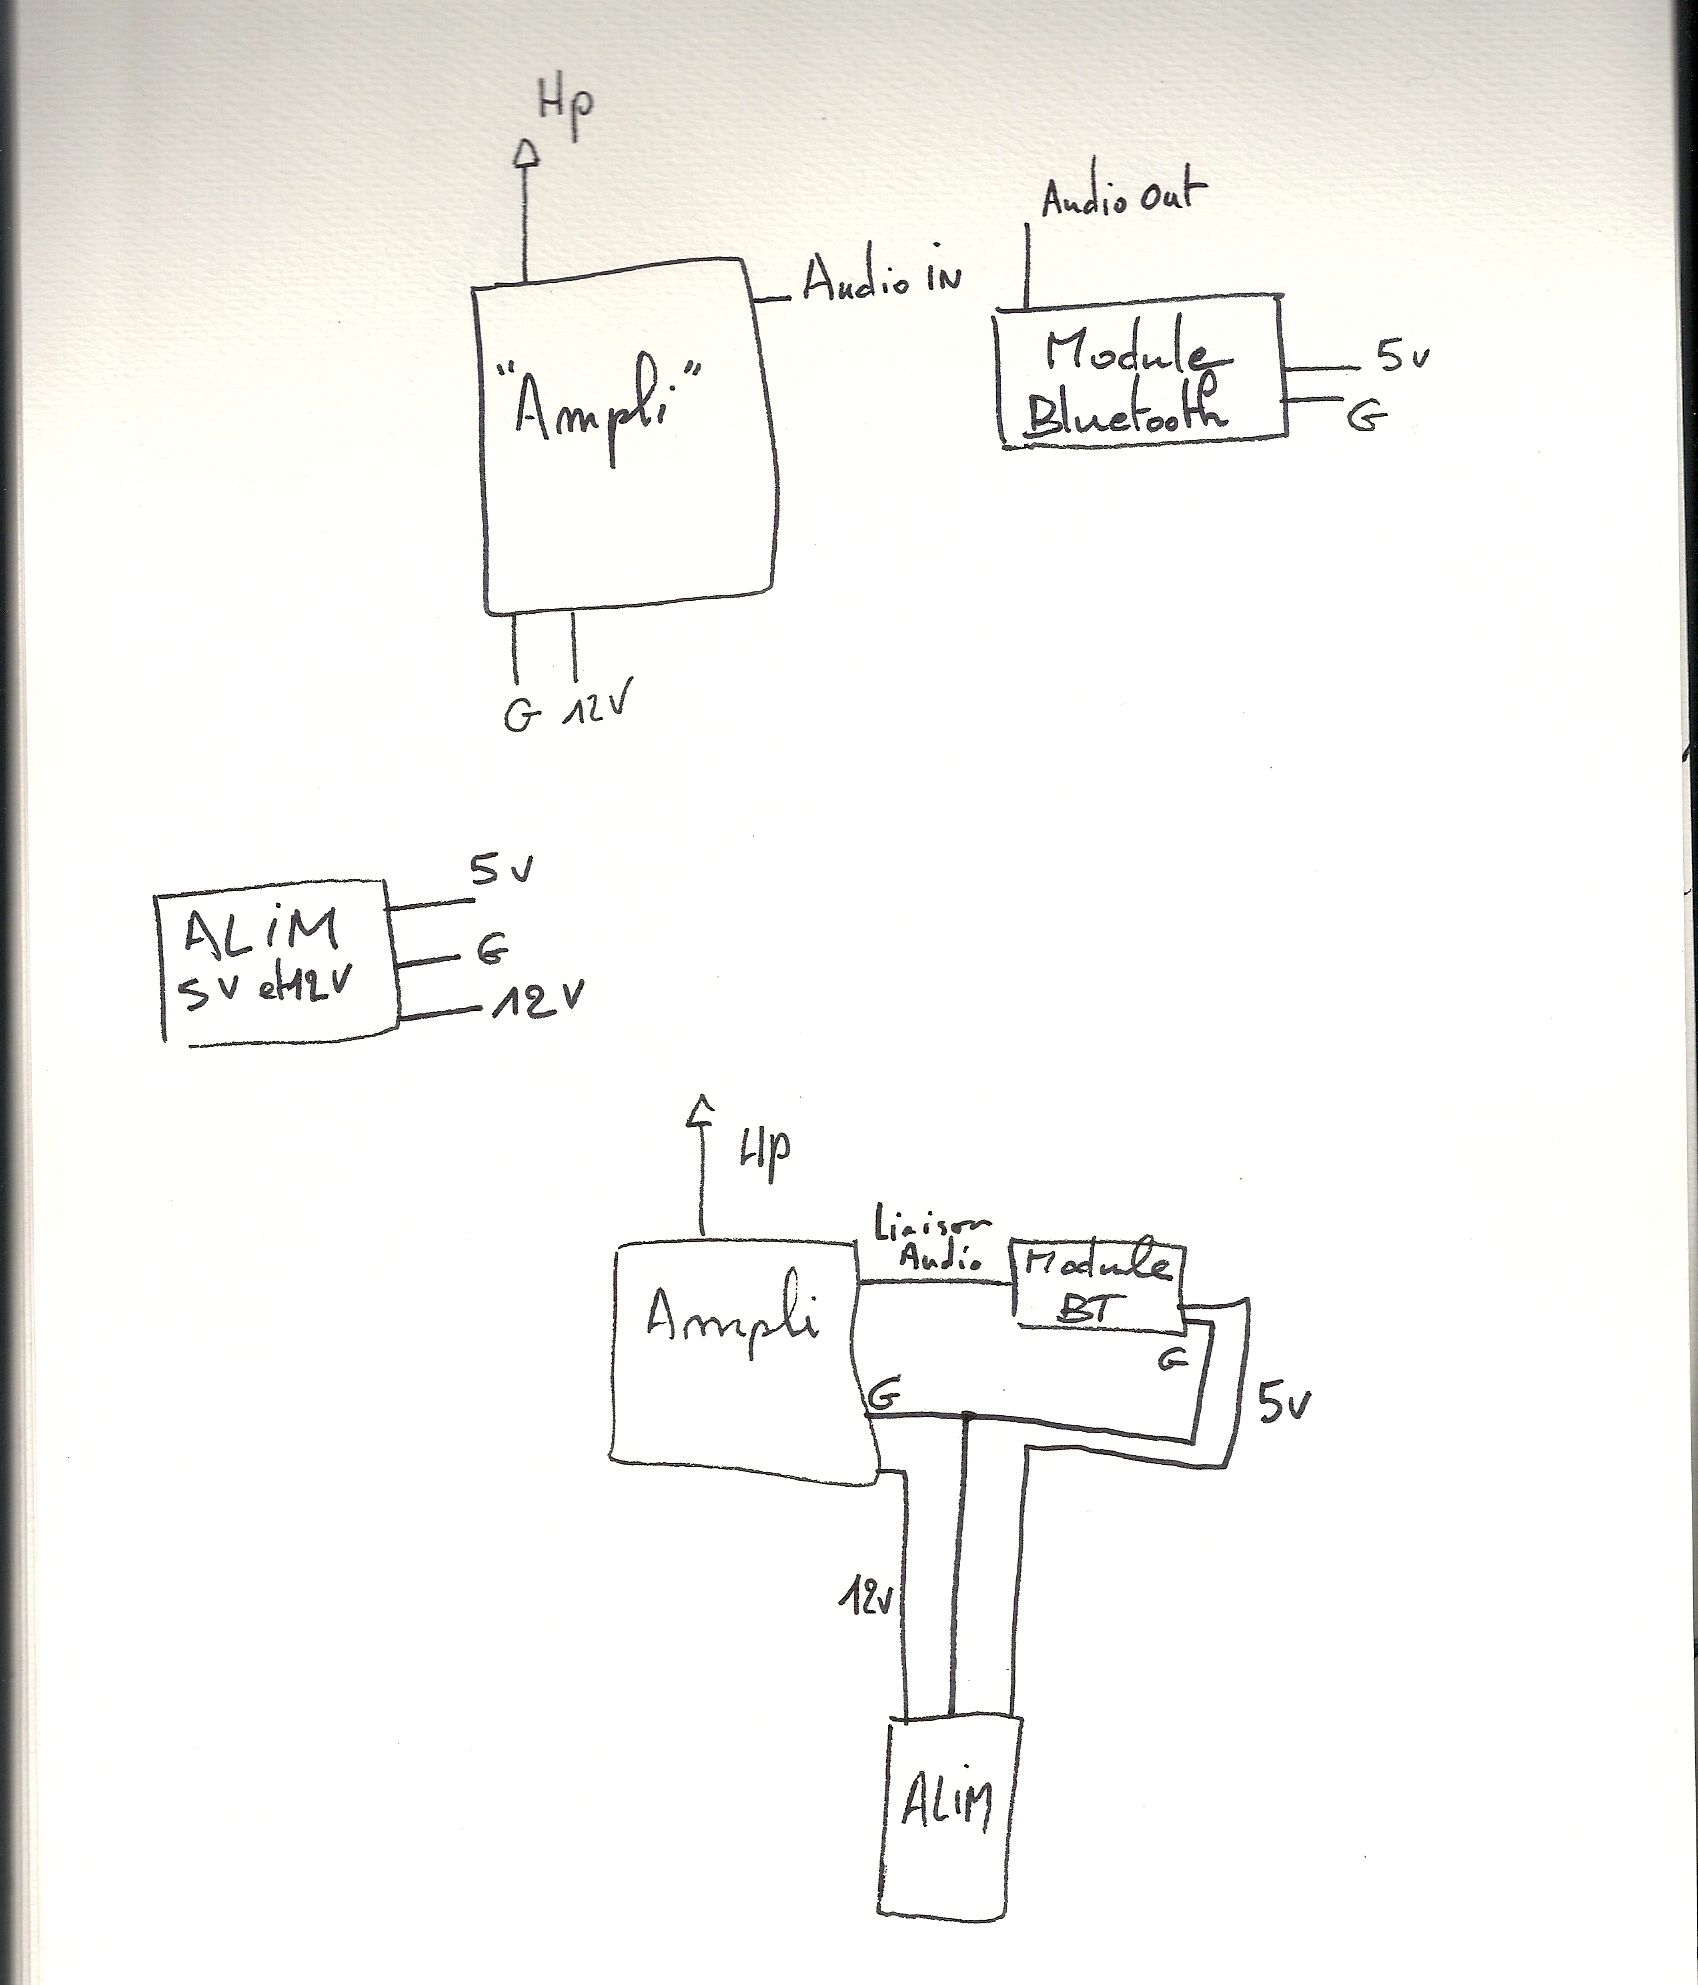 Hp
Audio Out
Audio in
"Ampli"
Module
Bluetooth
5v
G
G 12V
5v
ALiM
5V et 12V
G
12V
Hp
Liaison
Audio
Module
BT
Ampli
G
G
5v
12v
ALiM